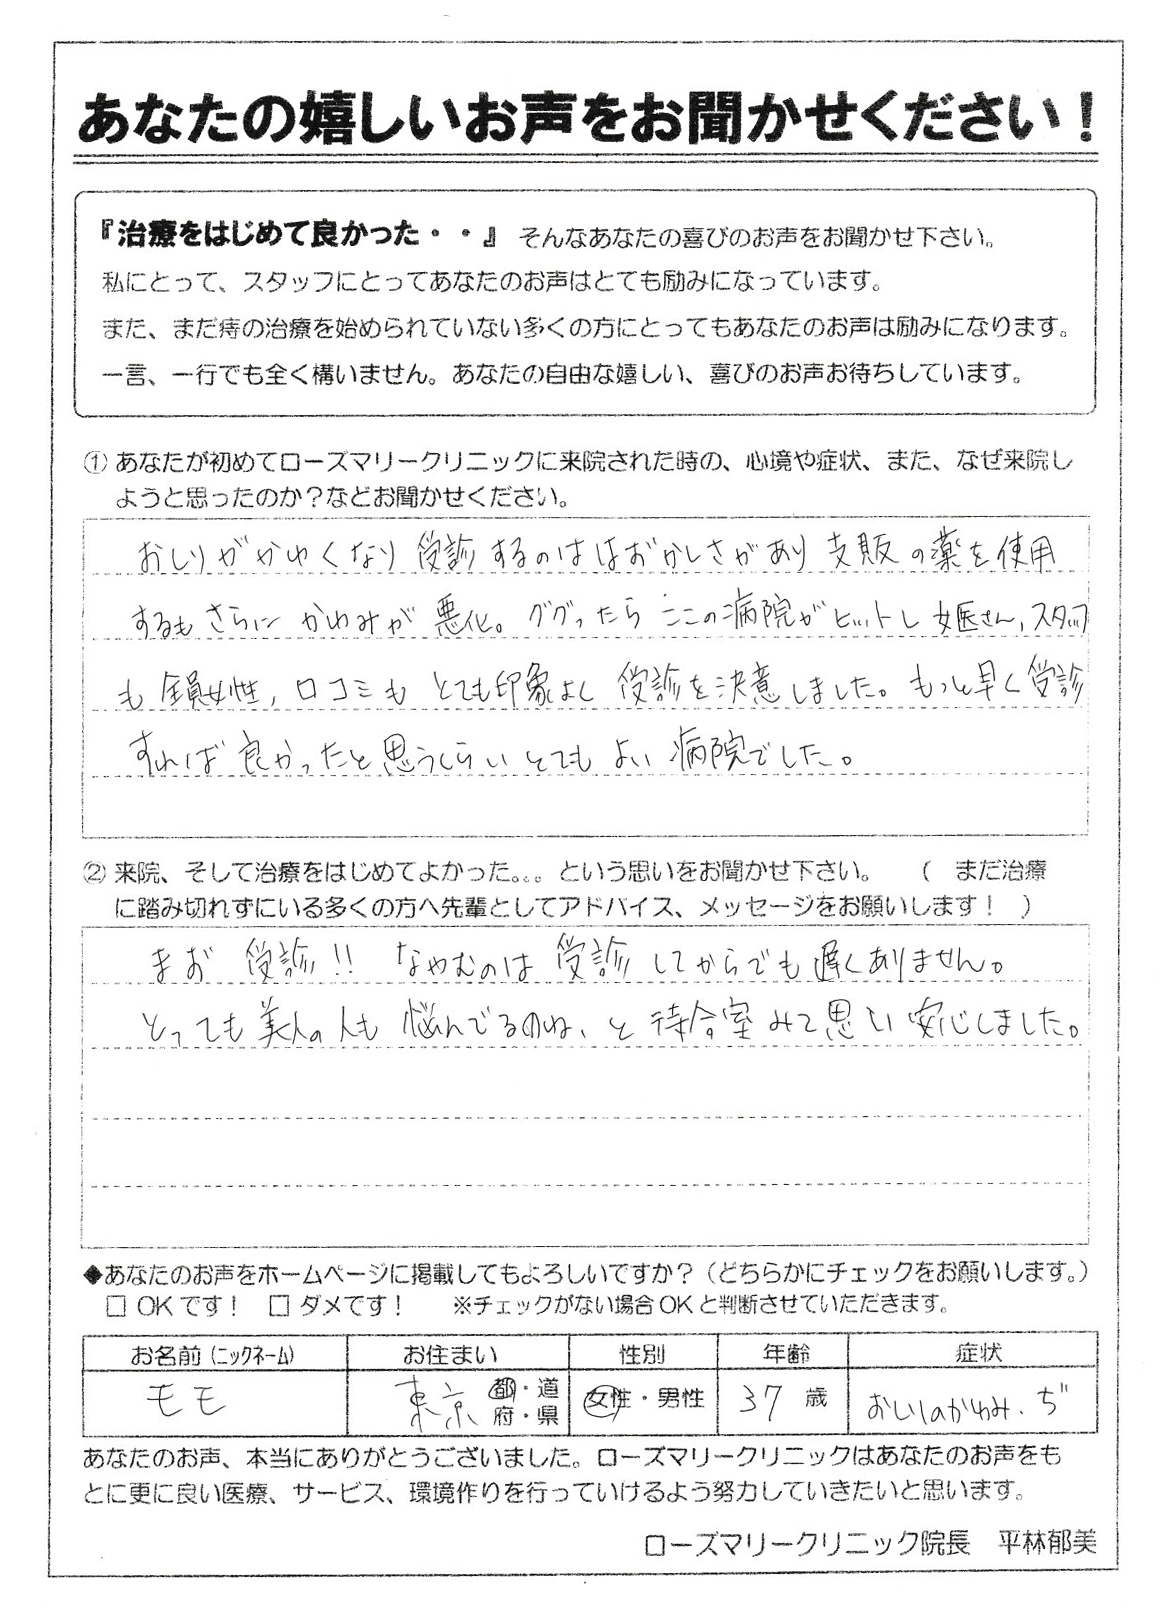 あなたの嬉しいお声をお聞かせください！
『治療をはじめて良かった・・』 そんなあなたの喜びのお声をお聞かせ下さい。
私にとって、スタッフにとってあなたのお声はとても励みになっています。
また、まだ痔の治療を始められていない多くの方にとってもあなたのお声は励みになります。
一言、一行でも全く構いません。あなたの自由な嬉しい、喜びのお声お待ちしています。
① あなたが初めてローズマリークリニックに来院された時の、心境や症状、また、なぜ来院し
ようと思ったのか？などお聞かせください。
おしりがかゆくなり 受診するのははずかしさがあり 支販の薬を使用
するも さらに かゆみが 悪化。ググったら ここの病院がヒットし 女医さん, スタッフ
も 全員女性, 口コミも とても印象よく 受診を決意しました。もっと早く受診
すれば 良かったと 思うくらい とても よい 病院でした。
② 来院、そして治療をはじめてよかった。。。という思いをお聞かせ下さい。 （ まだ治療
に踏み切れずにいる多くの方へ先輩としてアドバイス、メッセージをお願いします！ ）
まず 受診!! なやむのは 受診 してからでも 遅くありません。
とっても 美人の人も 悩んでるのね、と 待合室 みて 思い 安心しました。
◆あなたのお声をホームページに掲載してもよろしいですか？（どちらかにチェックをお願いします。）
□ OKです！ □ ダメです！ ※チェックがない場合OKと判断させていただきます。
お名前（ニックネーム） お住まい 性別 年齢 症状
モモ 東京 都・道 府・県 女性・男性 37 歳 おしりのかゆみ、ぢ
あなたのお声、本当にありがとうございました。ローズマリークリニックはあなたのお声をも
とに更に良い医療、サービス、環境作りを行っていけるよう努力していきたいと思います。
ローズマリークリニック院長 平林郁美